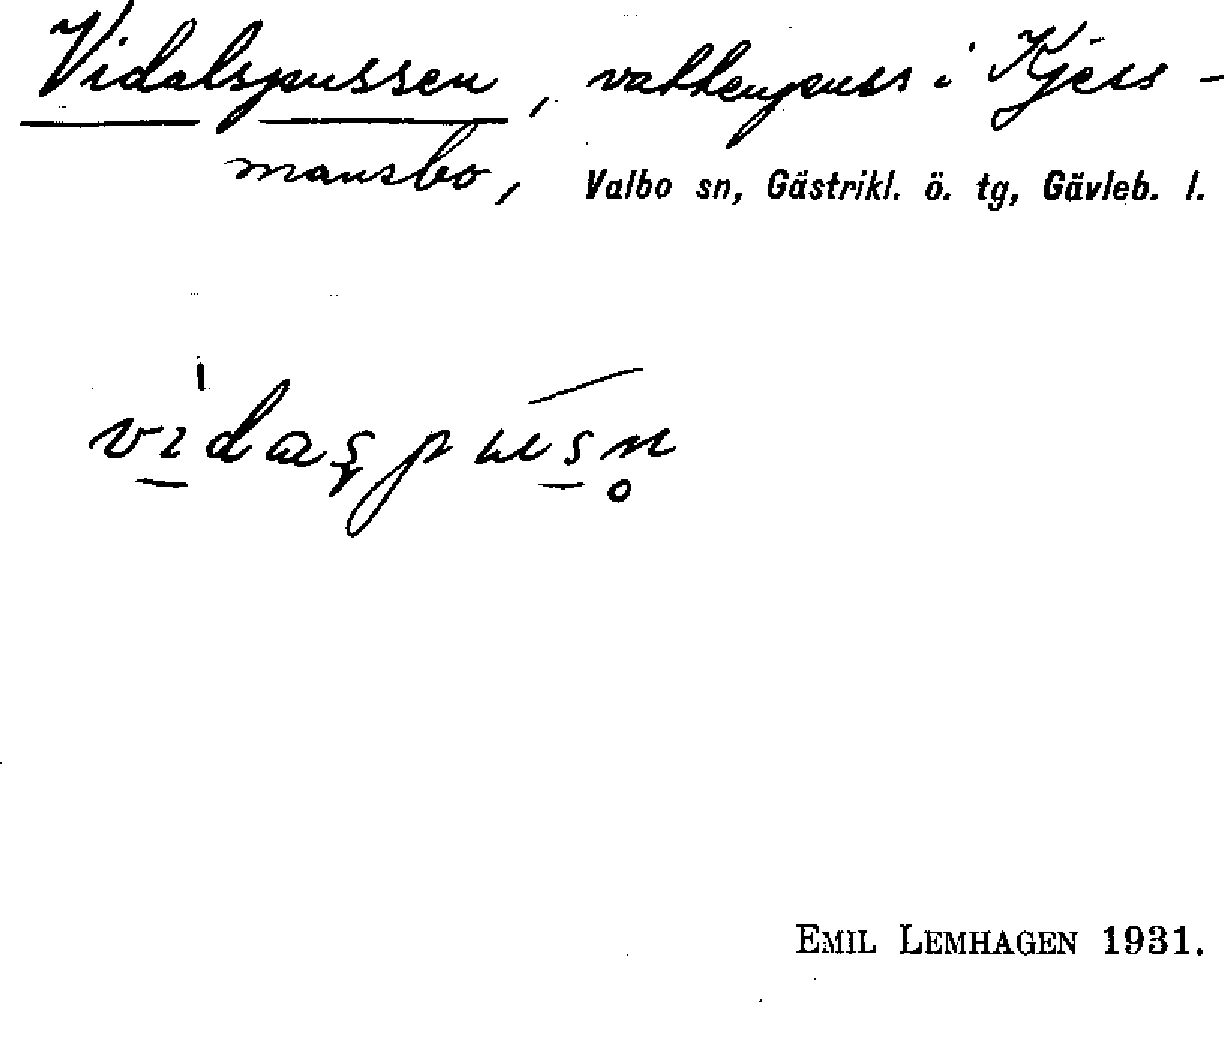 Vidalspussen, vattenpuss i Kjess-
mansbo, Valbo sn, Gästrikl. ö. tg, Gävleb. l.
vidaspusn
EMIL LEMHAGEN 1931.